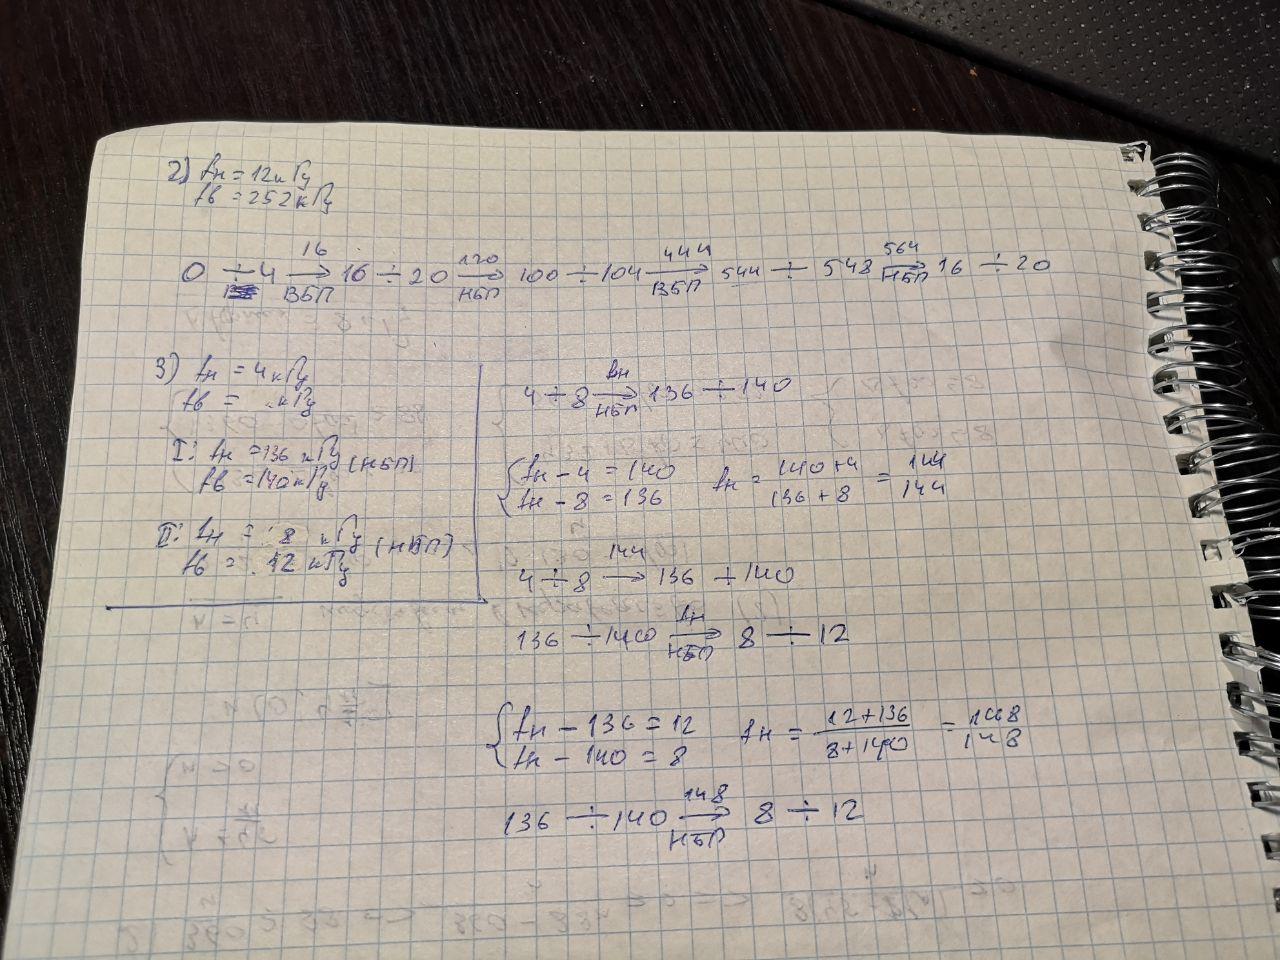 2) fн = 12кГц
fв = 252кГц
0 ÷ 4 16 → ВБП 16 ÷ 20 120 → НБП 100 ÷ 104 444 → ВБП 544 ÷ 548 564 → НБП 16 ÷ 20
3) fн = 4кГц
fв = кГц
I: fн = 136 кГц (НБП)
fв = 140кГц
II: fн = 8 кГц (НБП)
fв = 12 кГц
4 ÷ 8 fн → НБП 136 ÷ 140
{ fн - 4 = 140
fн - 8 = 136
fн = 140+4 / 136+8 = 144 / 144
4 ÷ 8 144 → 136 ÷ 140
136 ÷ 140 fн → НБП 8 ÷ 12
{ fн - 136 = 12
fн - 140 = 8
fн = 12+136 / 8+140 = 148 / 148
136 ÷ 140 148 → НБП 8 ÷ 12